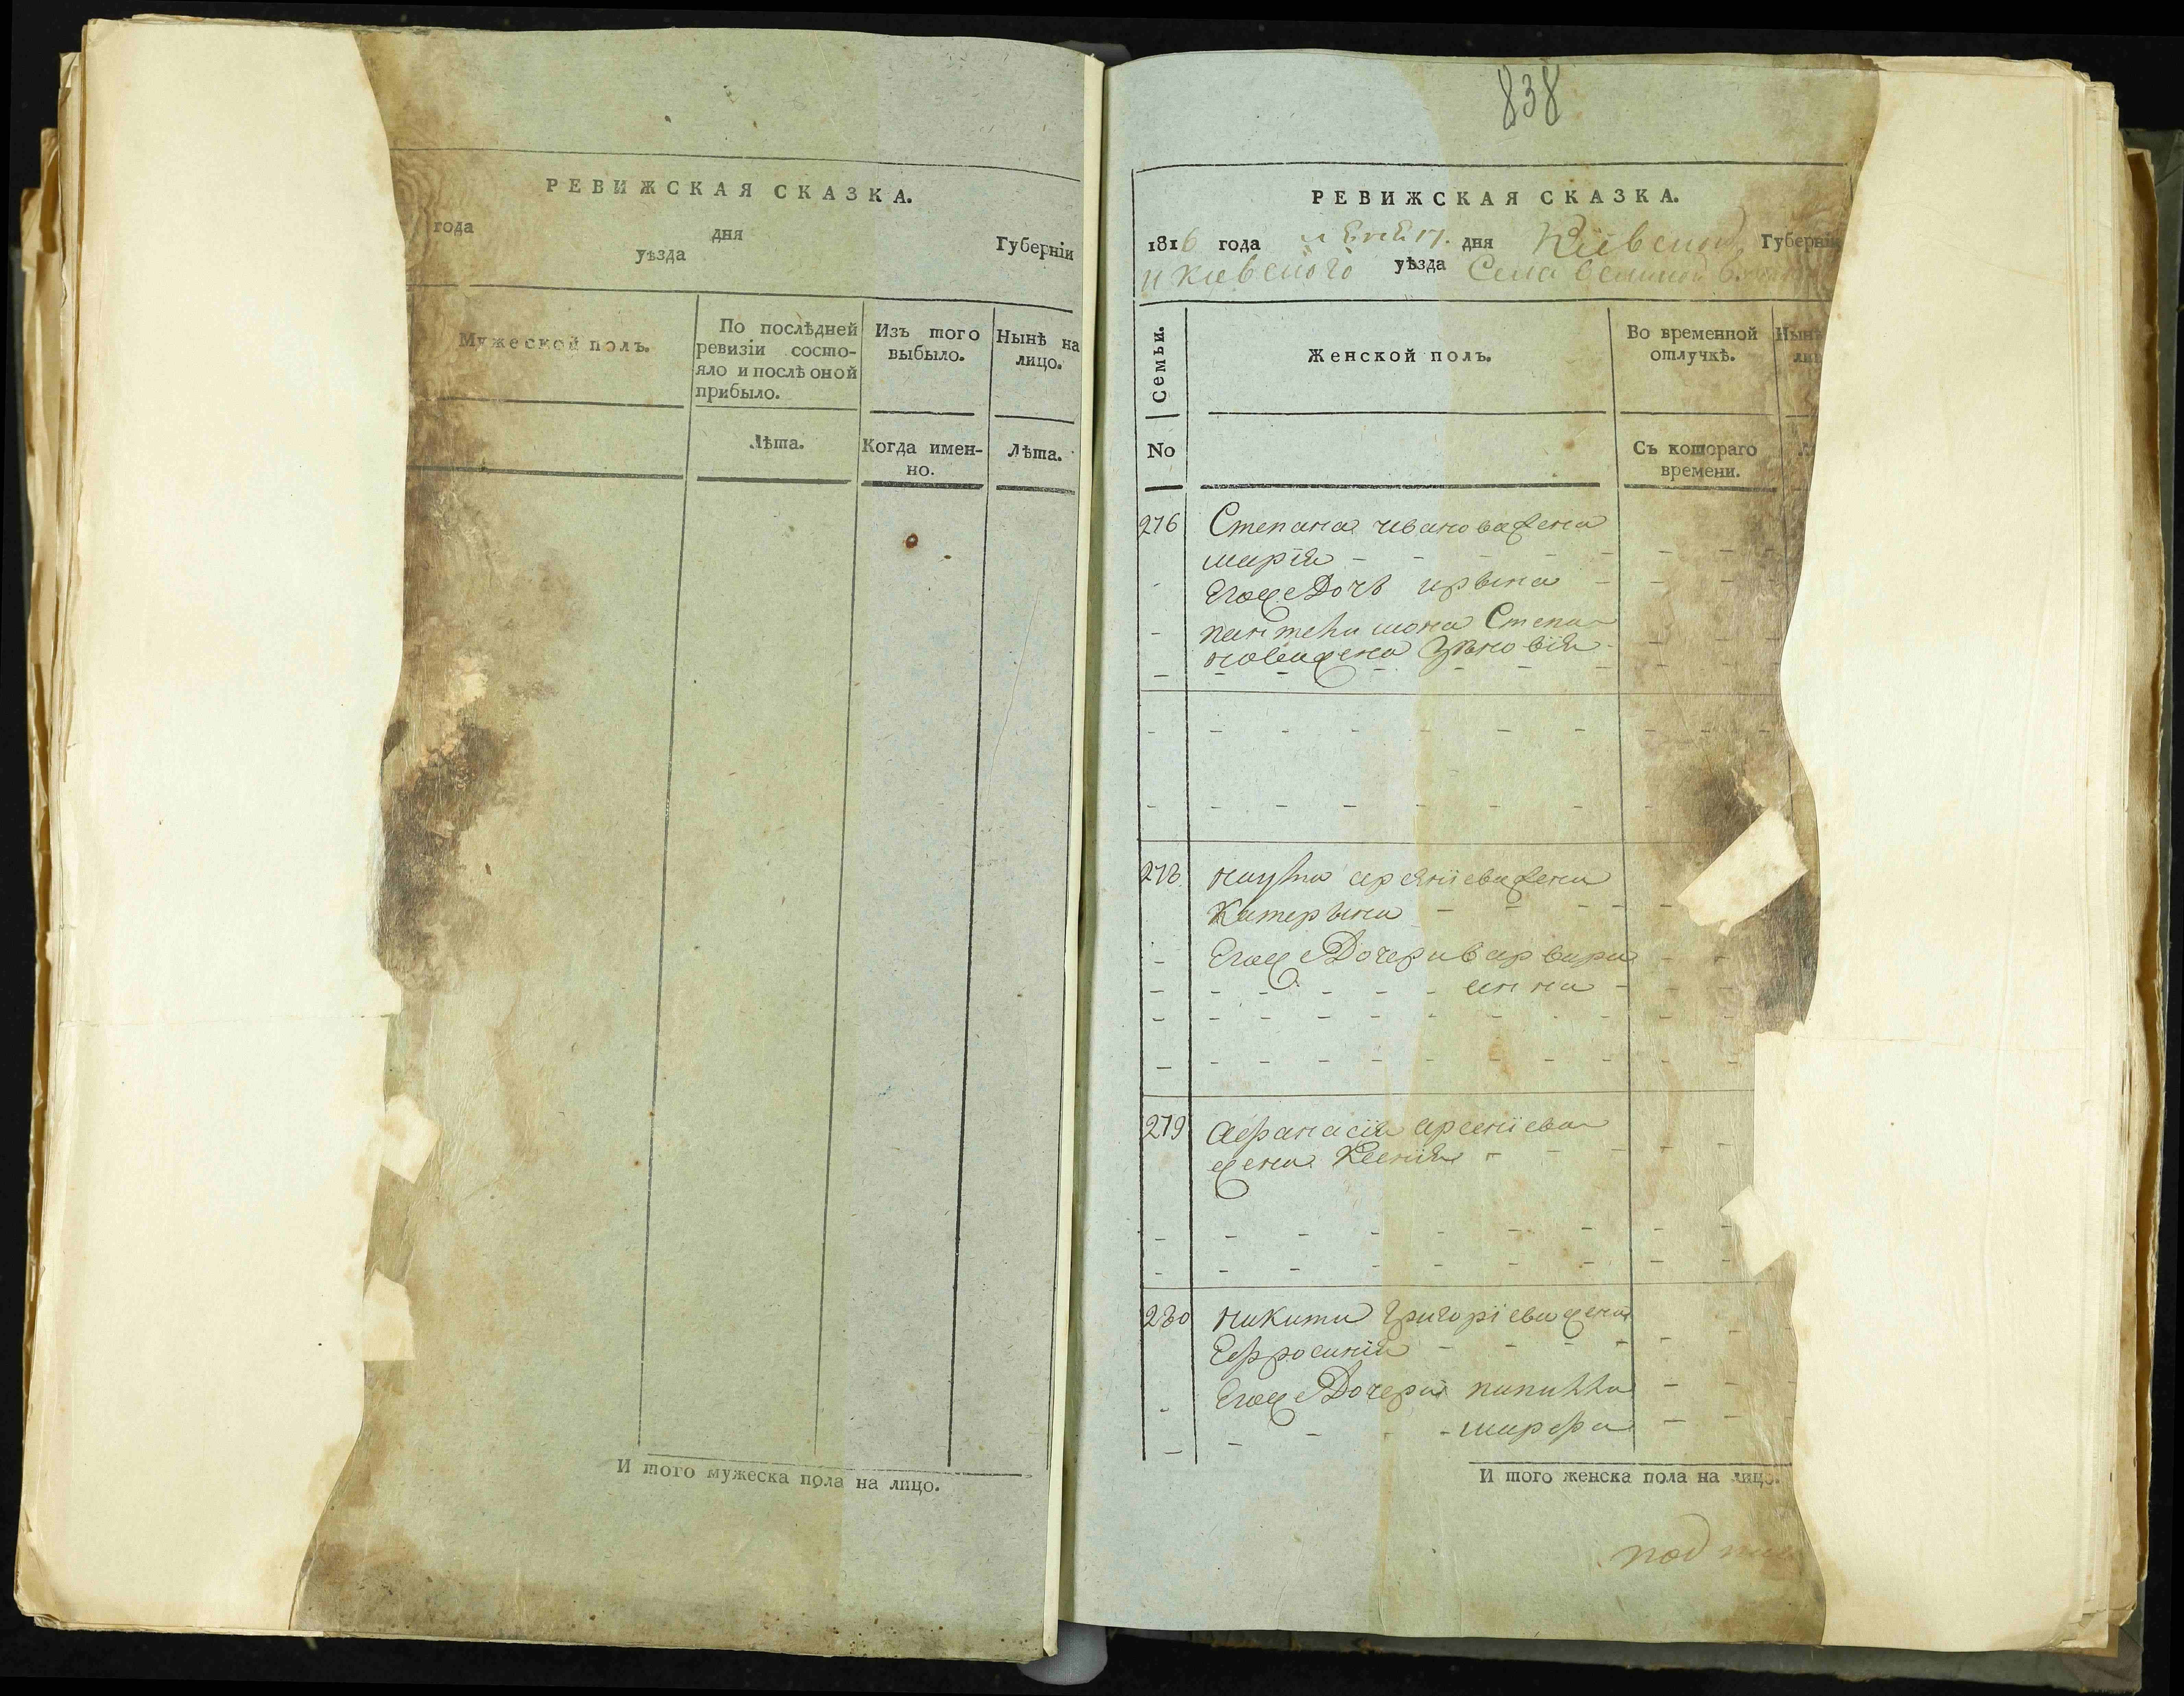 РЕВИЖСКАЯ СКАЗКА.
года дня Губерніи
уѣзда
Мужеской полъ.
По послѣдней
ревизіи состо-
яло и послѣ оной
прибыло.
Изъ того
выбыло.
Нынѣ на
лицо.
Лѣта.
Когда имен-
но.
Лѣта.
И того мужеска пола на лицо.
838
РЕВИЖСКАЯ СКАЗКА.
1816 года дня Кіевской Губерніи
и Кіевского уѣзда Села
Семьи.
Женской полъ.
Во временной
отлучкѣ.
Нынѣ
No
Съ котораго
времени.
276 Степана иванова жена
марія
Его же Дочь ирына
пантелимона Степа
нова жена Зѣновія
278 наума арсяніева жена
Катерына
Его же Дочери варвара
анна
279 Афанасія арсеніева
жена Ксенія
280 никиты григоріева жена
Ефросинія
Его же Дочери
марфа
И того женска пола на лицо.
под